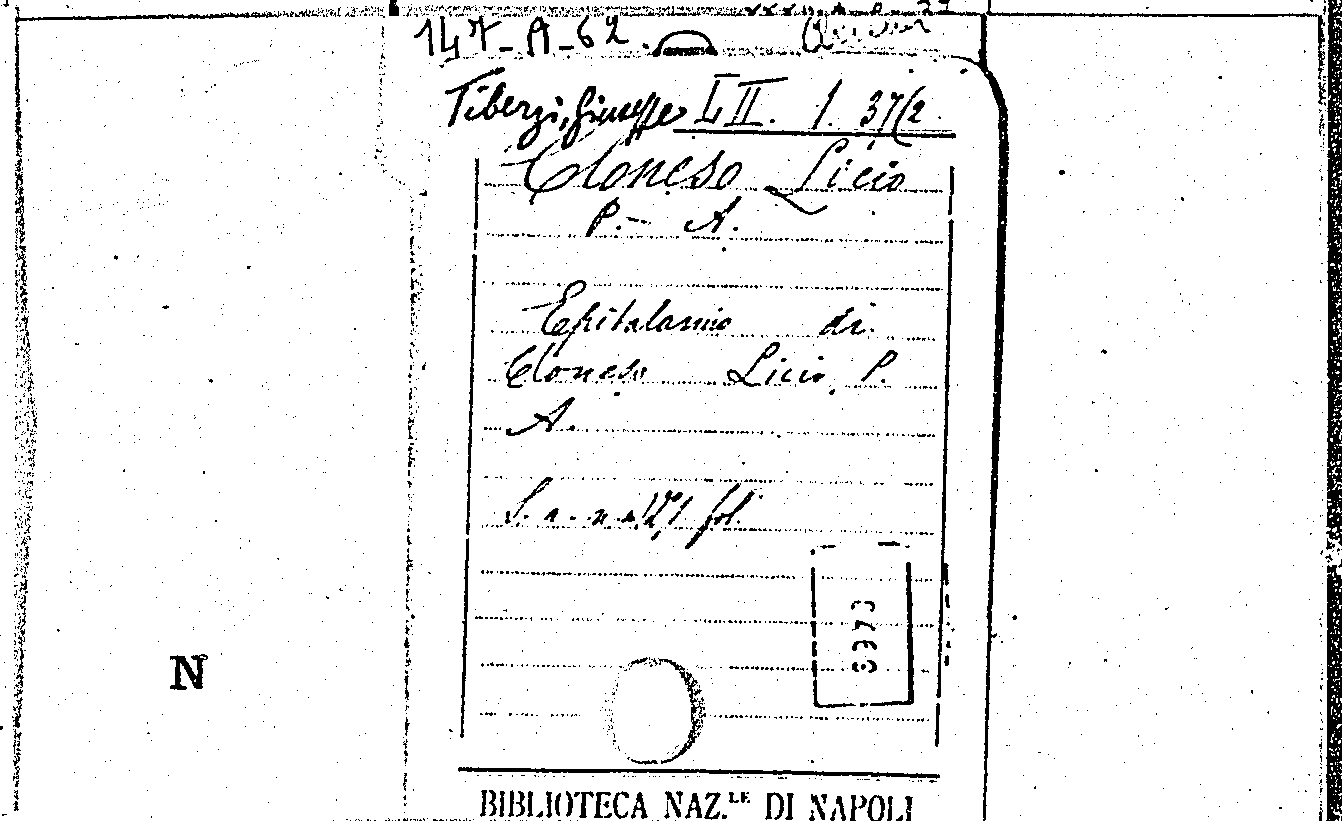 147-A-62.
Tiberzi, Giuseppe LII. 1. 37/2
Cloneso Licio
P. - A.
Epitalamio di
Cloneso Licio, P.
A.
S. n. n. fol.
8973
N
BIBLIOTECA NAZ.LE DI NAPOLI